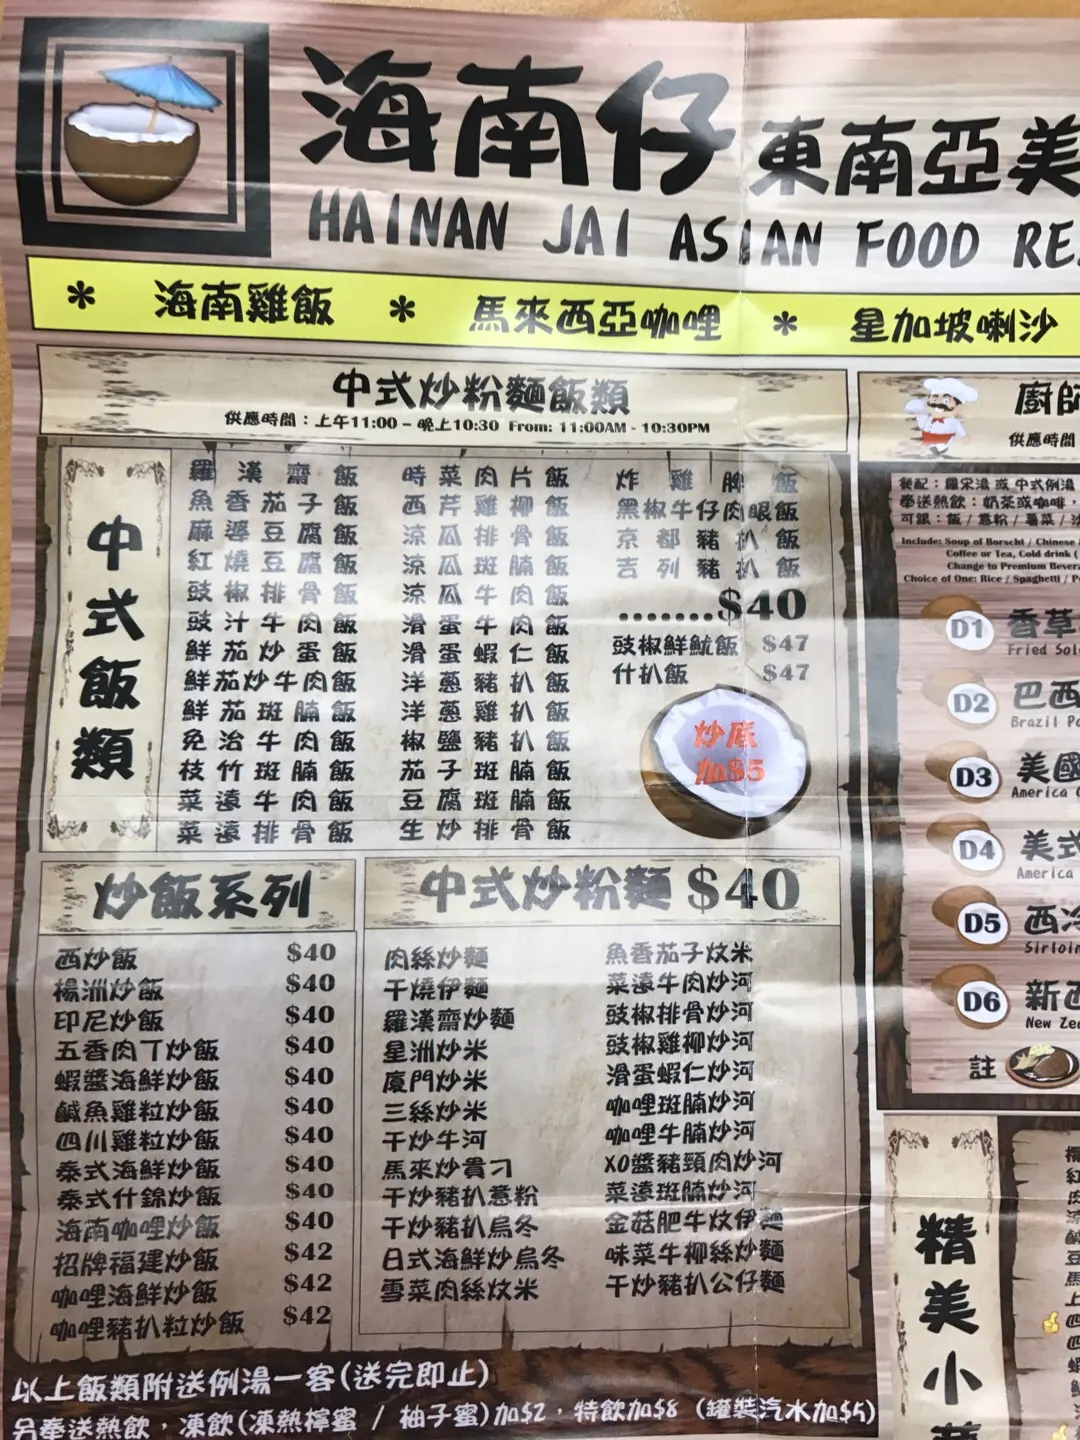 海南仔 東南亞美
HAINAN JAI ASIAN FOOD RE
* 海南雞飯 * 馬來西亞咖哩 * 星加坡喇沙
中式炒粉麵飯類
供應時間：上午11:00 – 晚上10:30 From: 11:00AM - 10:30PM
中式飯類
羅漢齋飯
魚香茄子飯
麻婆豆腐飯
紅燒豆腐飯
豉椒排骨飯
豉汁牛肉飯
鮮茄炒蛋飯
鮮茄炒牛肉飯
鮮茄斑腩飯
免治牛肉飯
枝竹斑腩飯
菜遠牛肉飯
菜遠排骨飯
時菜肉片飯
西芹雞柳飯
涼瓜排骨飯
涼瓜斑腩飯
涼瓜牛肉飯
滑蛋牛肉飯
滑蛋蝦仁飯
洋蔥豬扒飯
洋蔥雞扒飯
椒鹽豬扒飯
茄子斑腩飯
豆腐斑腩飯
生炒排骨飯
炸雞脾飯
黑椒牛仔肉眼飯
京都豬扒飯
吉列豬扒飯
.......$40
豉椒鮮魷飯 $47
什扒飯 $47
炒底
加$5
炒飯系列
西炒飯 $40
楊洲炒飯 $40
印尼炒飯 $40
五香肉丁炒飯 $40
蝦醬海鮮炒飯 $40
鹹魚雞粒炒飯 $40
四川雞粒炒飯 $40
泰式海鮮炒飯 $40
泰式什錦炒飯 $40
海南咖哩炒飯 $40
招牌福建炒飯 $42
咖哩海鮮炒飯 $42
咖哩豬扒粒炒飯 $42
中式炒粉麵 $40
肉絲炒麵
干燒伊麵
羅漢齋炒麵
星洲炒米
廈門炒米
三絲炒米
干炒牛河
馬來炒貴刁
干炒豬扒意粉
干炒豬扒烏冬
日式海鮮炒烏冬
雪菜肉絲炆米
魚香茄子炆米
菜遠牛肉炒河
豉椒排骨炒河
豉椒雞柳炒河
滑蛋蝦仁炒河
咖哩斑腩炒河
咖哩牛腩炒河
XO醬豬頸肉炒河
菜遠斑腩炒河
金菇肥牛炆伊麵
味菜牛柳絲炒麵
干炒豬扒公仔麵
以上飯類附送例湯一客(送完即止)
另奉送熱飲，凍飲(凍熱檸蜜 / 柚子蜜)加$2，特飲加$8 (罐裝汽水加$5)
廚師
供應時間
餐配：羅宋湯 或 中式例湯
奉送熱飲：奶茶或咖啡，
可跟：飯 / 意粉 / 薯菜 /
Include: Soup of Borscht / Chinese
Coffee or Tea, Cold drink (
Change to Premium Bevera
Choice of One: Rice / Spaghetti / P
D1 香草
Fried Sol
D2 巴西
Brazil Po
D3 美國
America
D4 美式
America
D5 西冷
Sirloin
D6 新西
New Zea
註
精美小